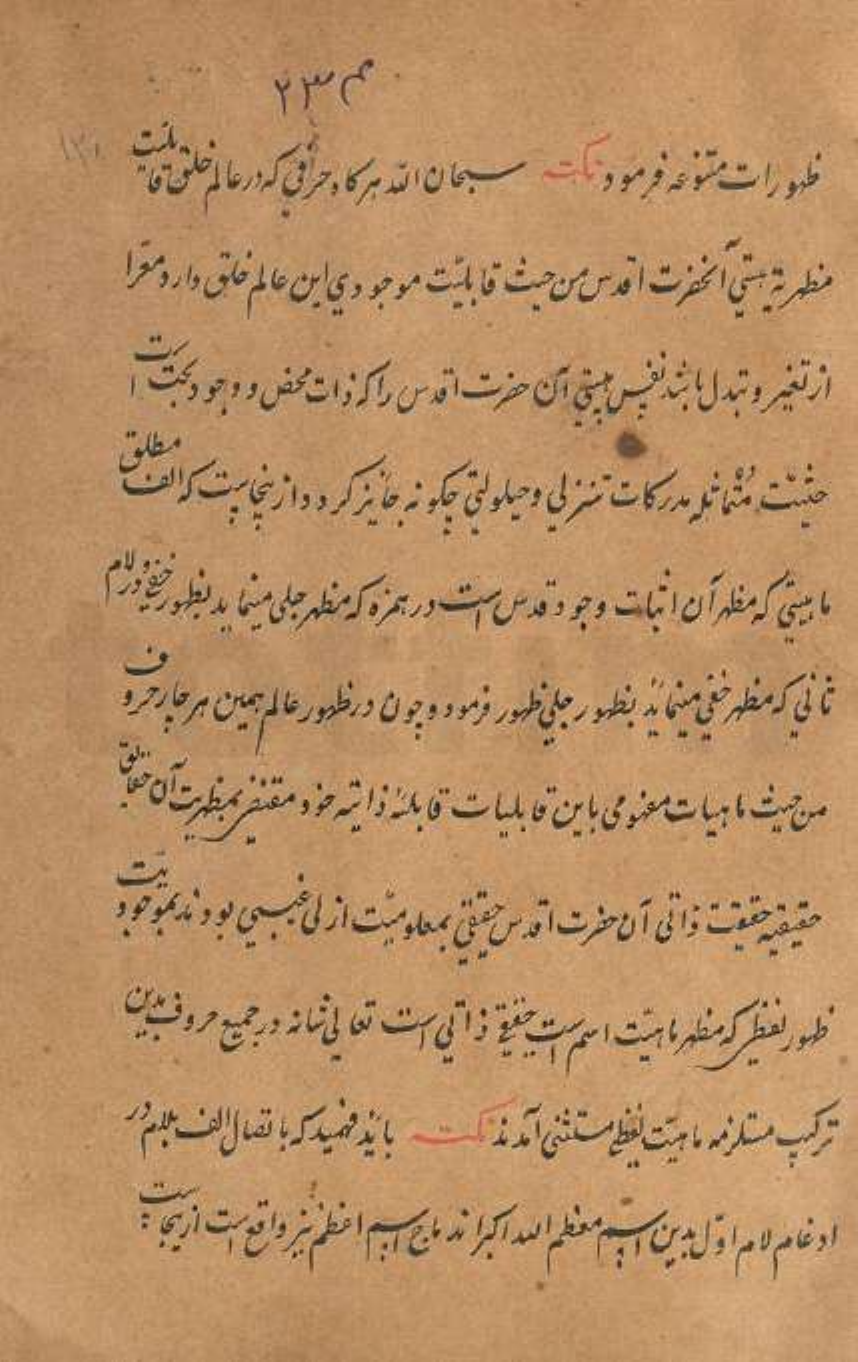 ۲۳۰م
۱۳۱
ظهورات متنوعه فرمود نکته سبحان الله هرگاه حرفی که در عالم خلق قابلیت
مظهریة هستی آنحضرت اقدس من حیث قابلیّت موجودی این عالم خلق دارد معرا
از تغیر و تبدل باشد نفس هستی آن حضرت اقدس را که ذات محض و وجود بحت است
حیثیّت مُتماثله مدرکات تنزلی و حیلولتی چگونه جائز گردد و از ینجاست که الف مطلق
ماهیتی که مظهر آن اثبات وجود قدس است در همزه که مظهر جلی مینماید بظهور خفی و در لام
ثانی که مظهر خفی مینماید بظهور جلی ظهور فرمود و چون در ظهور عالم همین هر چار حروف
من حیث ماهیات مفهومی باین قابلیات قابلهٔ ذاتیه خود مقتضی مظهریت آن حقایق
حقیقیه حقیقت ذاتی آن حضرت اقدس حقیقی بمعلومیّت ازلی غیبی بودند بموجودیّت
ظهور لفظی که مظهر ماهیّت اسم است حقیقی ذاتی است تعالی شانه در جمیع حروف بدین
ترکیب مستلزمه ماهیّت لفظی مستثنی آمدند نکته باید فهمید که باتصال الف بلام در
ادغام لام اوّل بدین اسم معظم الله اکبر اندماج اسم اعظم نیز واقع است ازینجاست